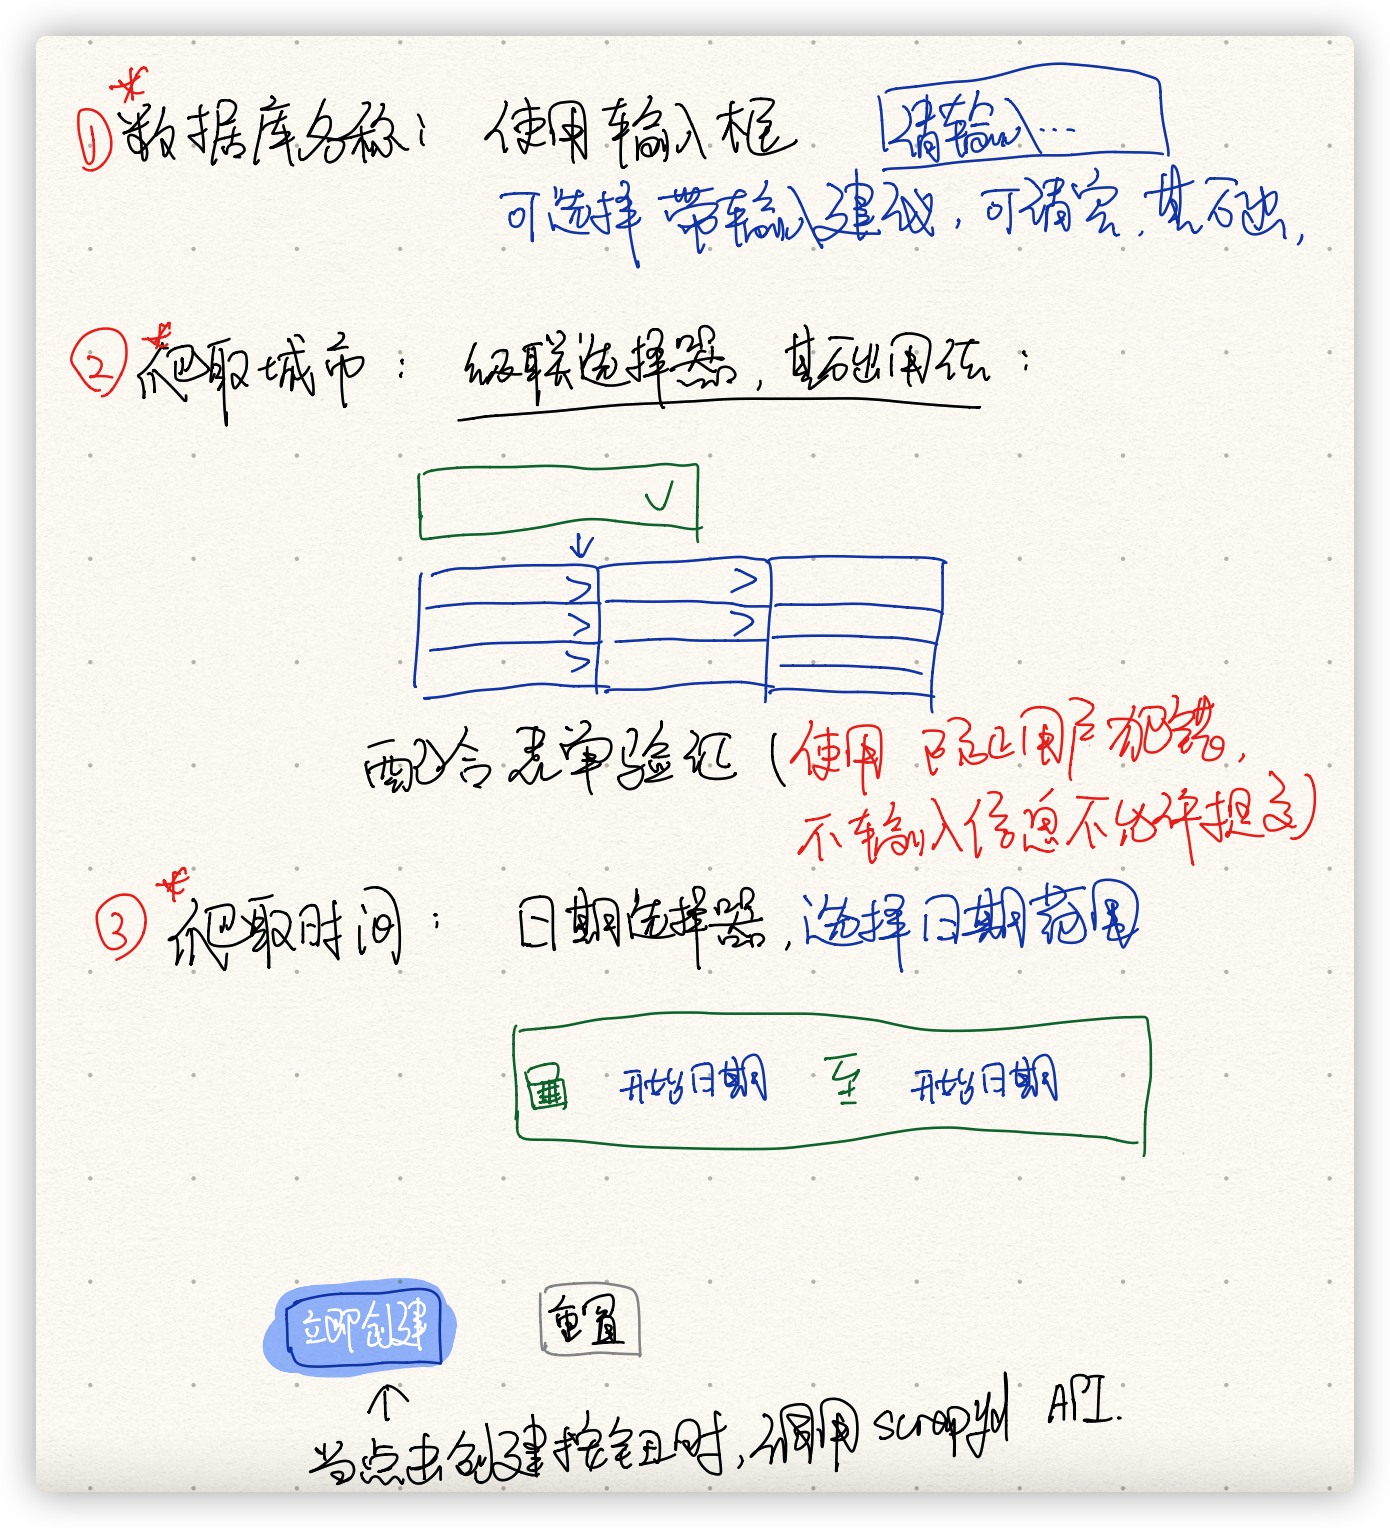 ① *数据库名称: 使用输入框 请输入...
可选择 带输入建议, 可清空, 基础,
② *爬取城市: 级联选择器, 基础用法:
配合表单验证 (使用 防止用户犯错,
不输入信息不允许提交)
③ *爬取时间: 日期选择器, 选择日期范围
开始日期 至 开始日期
立即创建 重置
↑
当点击创建按钮时, 调用 scrapyd API.